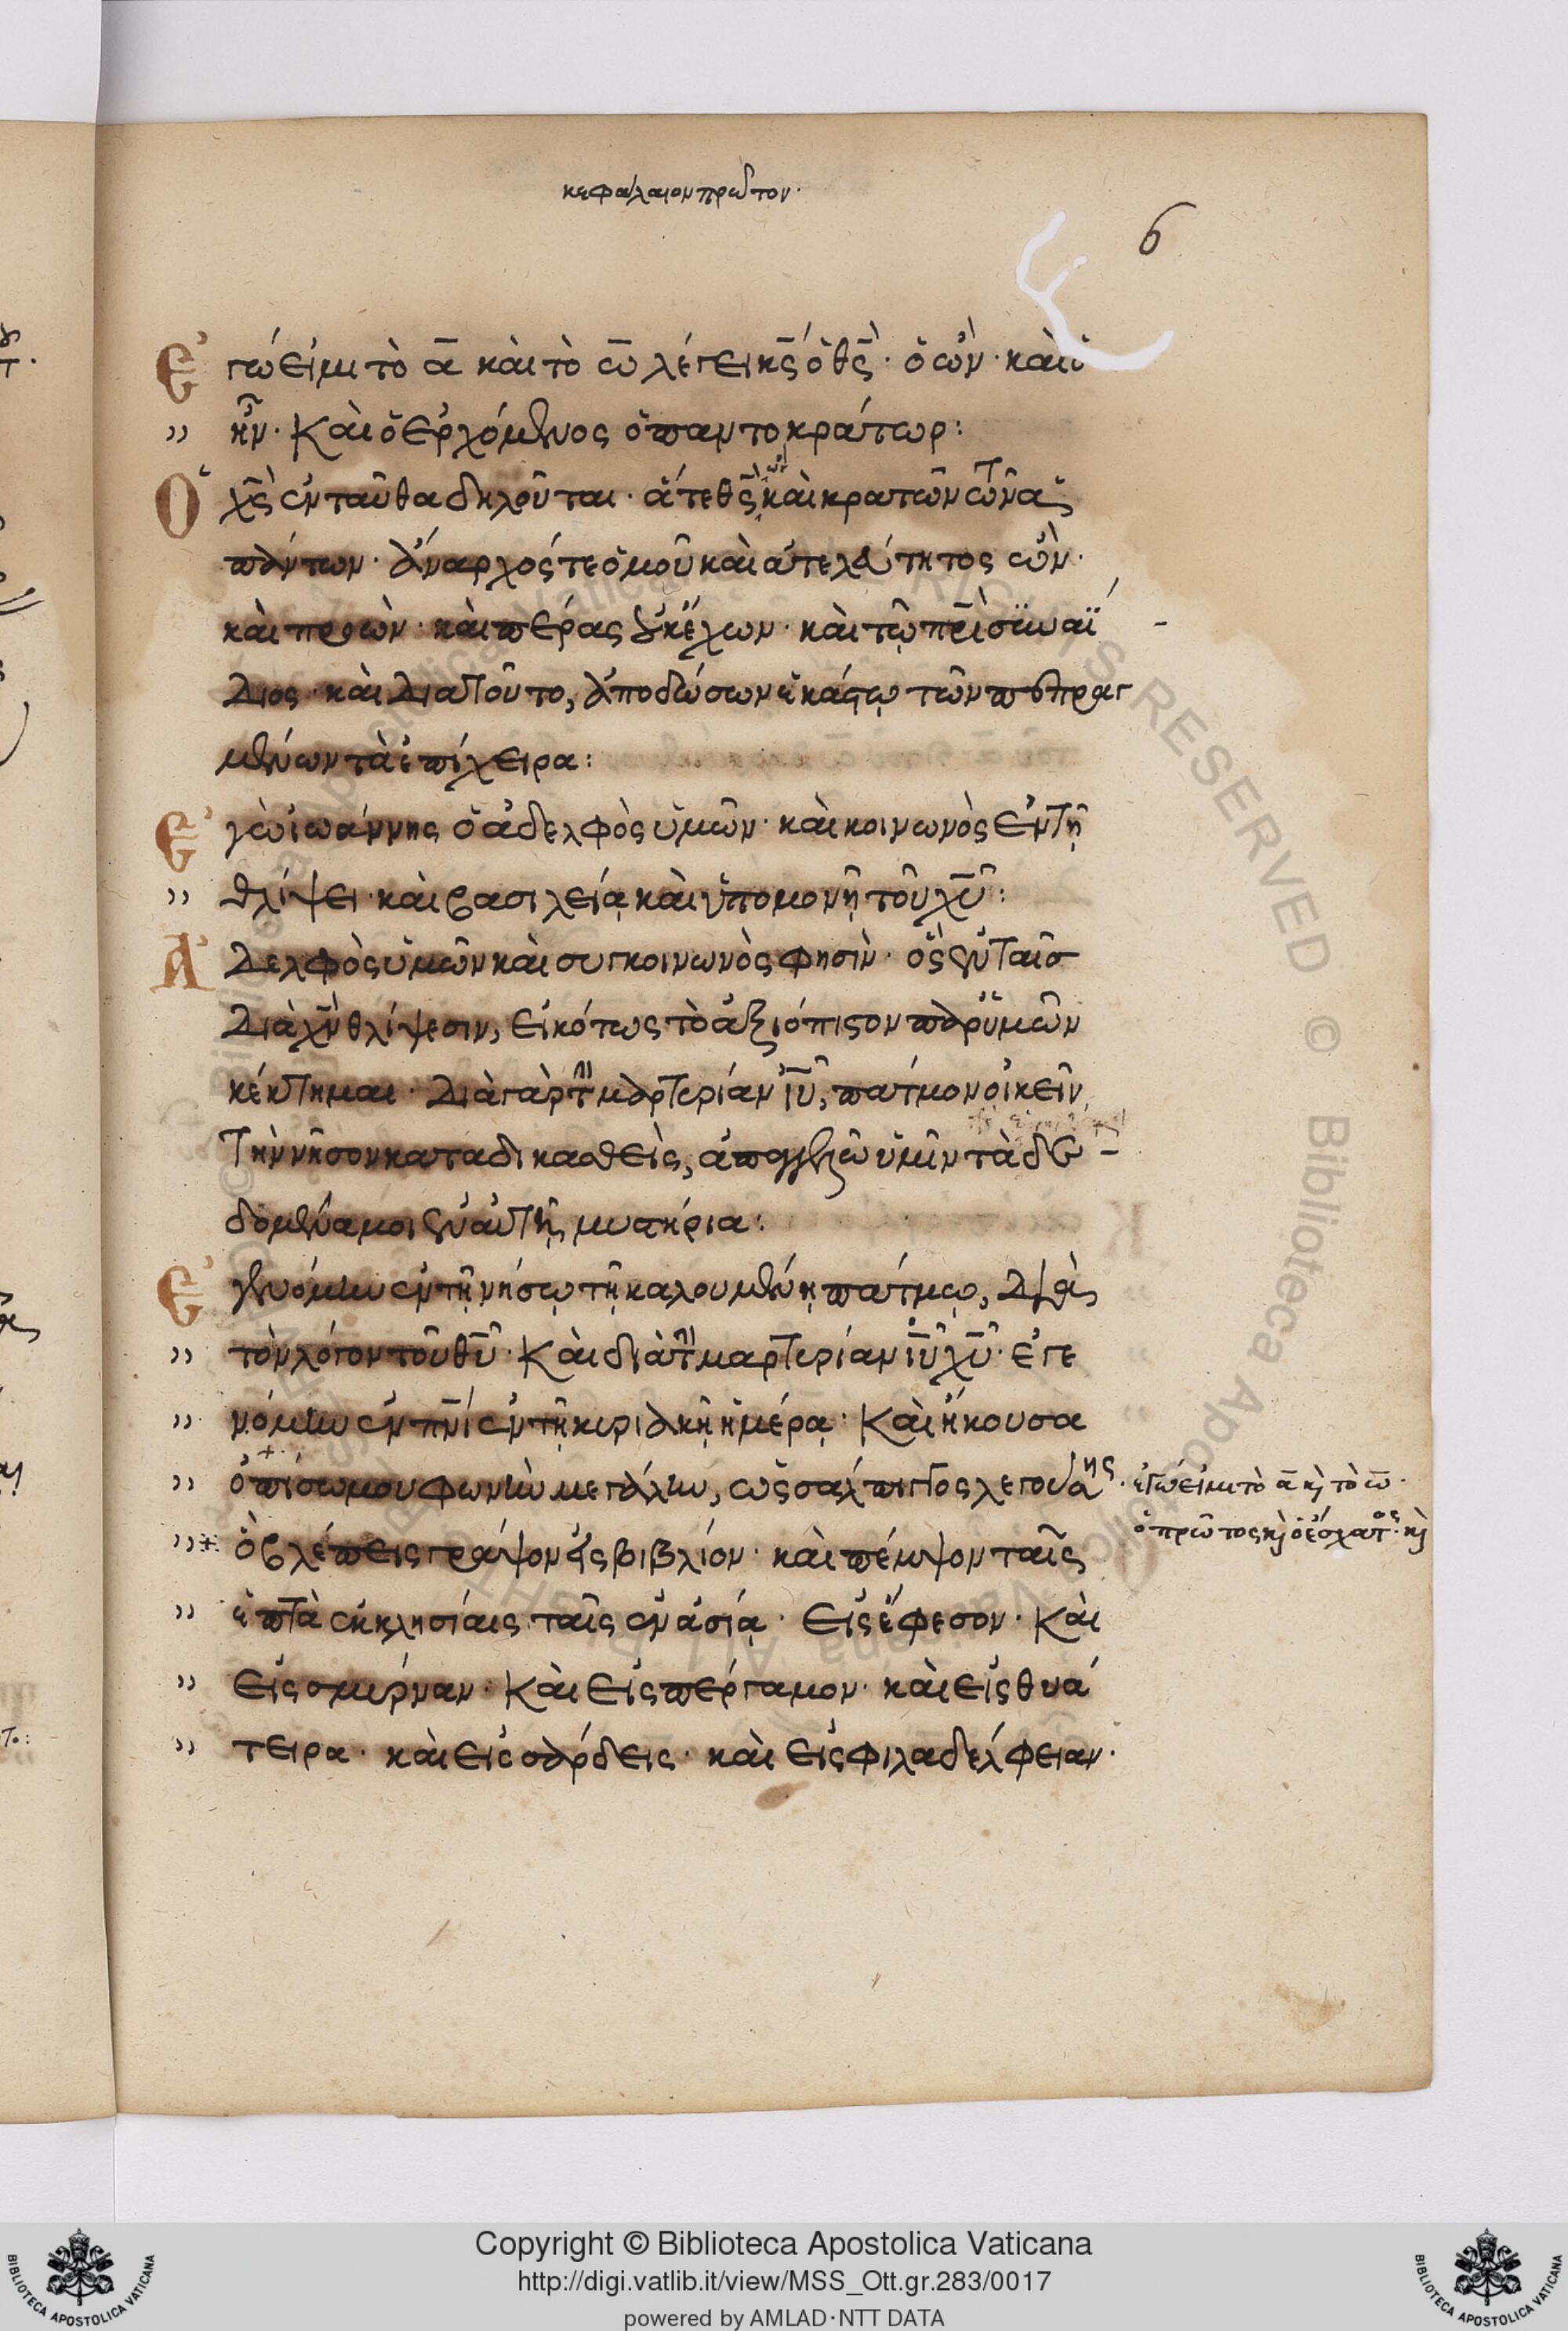 κεφάλαιον πρῶτον·
6
Ἐγώ εἰμι τὸ α καὶ τὸ ω λέγει κς ὁ θς· ὁ ὢν· καὶ ὁ
ἦν· καὶ ὁ ἐρχόμενος ὁ παντοκράτωρ:
Ὁ χς ἐνταῦθα δηλοῦται· ἅτε θς καὶ κρατῶν τῶν ἁ
πάντων· ἄναρχός τε ὁμοῦ καὶ ἀτελεύτητος ὤν·
καὶ προὼν· καὶ πέρας οὐκ ἔχων· καὶ τῷ πρι συναΐ
διος· καὶ διὰ τοῦτο, ἀποδώσων ἑκάστῳ τῶν πεπραγ
μένων τὰ ἐπίχειρα:
Ἐγὼ ἰωάννης ὁ ἀδελφὸς ὑμῶν· καὶ κοινωνὸς ἐν τῇ
θλίψει· καὶ βασιλείᾳ καὶ ὑπομονῇ τοῦ χυ:
Ἀδελφὸς ὑμῶν καὶ συγκοινωνὸς φησὶν· ὃς ἐν ταῖσ
διὰ χν θλίψεσιν, εἰκότως τὸ ἀξιόπιστον παρ ὑμῶν
κέκτημαι· διὰ γὰρ τὴν μαρτυρίαν ιυ, πάτμον οἰκεῖν
τὴν νῆσον καταδικασθεὶς, ἀπαγγελῶ ὑμῖν τὰ δε
δομένα μοι ἐν αὐτῇ μυστήρια:
Ἐγενόμην ἐν τῇ νήσῳ τῇ καλουμένῃ πάτμῳ, διὰ
τὸν λόγον τοῦ θυ· καὶ διὰ τὴν μαρτυρίαν ιυ χυ· ἐγε
νόμην ἐν πνι ἐν τῇ κυριακῇ ἡμέρᾳ· καὶ ἤκουσα
ὀπίσω μου φωνὴν μεγάλην, ὡς σάλπιγγος λεγούσης· ἐγώ εἰμι τὸ α καὶ τὸ ω·
ὁ πρῶτος καὶ ὁ ἔσχατος· καὶ
ὃ βλέπεις γράψον εἰς βιβλίον· καὶ πέμψον ταῖς
ἑπτὰ ἐκκλησίαις ταῖς ἐν ἀσίᾳ· εἰς ἔφεσον· καὶ
εἰς σμύρναν· καὶ εἰς πέργαμον· καὶ εἰς θυά
τειρα· καὶ εἰς σάρδεις· καὶ εἰς φιλαδέλφειαν·
Copyright © Biblioteca Apostolica Vaticana
http://digi.vatlib.it/view/MSS_Ott.gr.283/0017
powered by AMLAD·NTT DATA